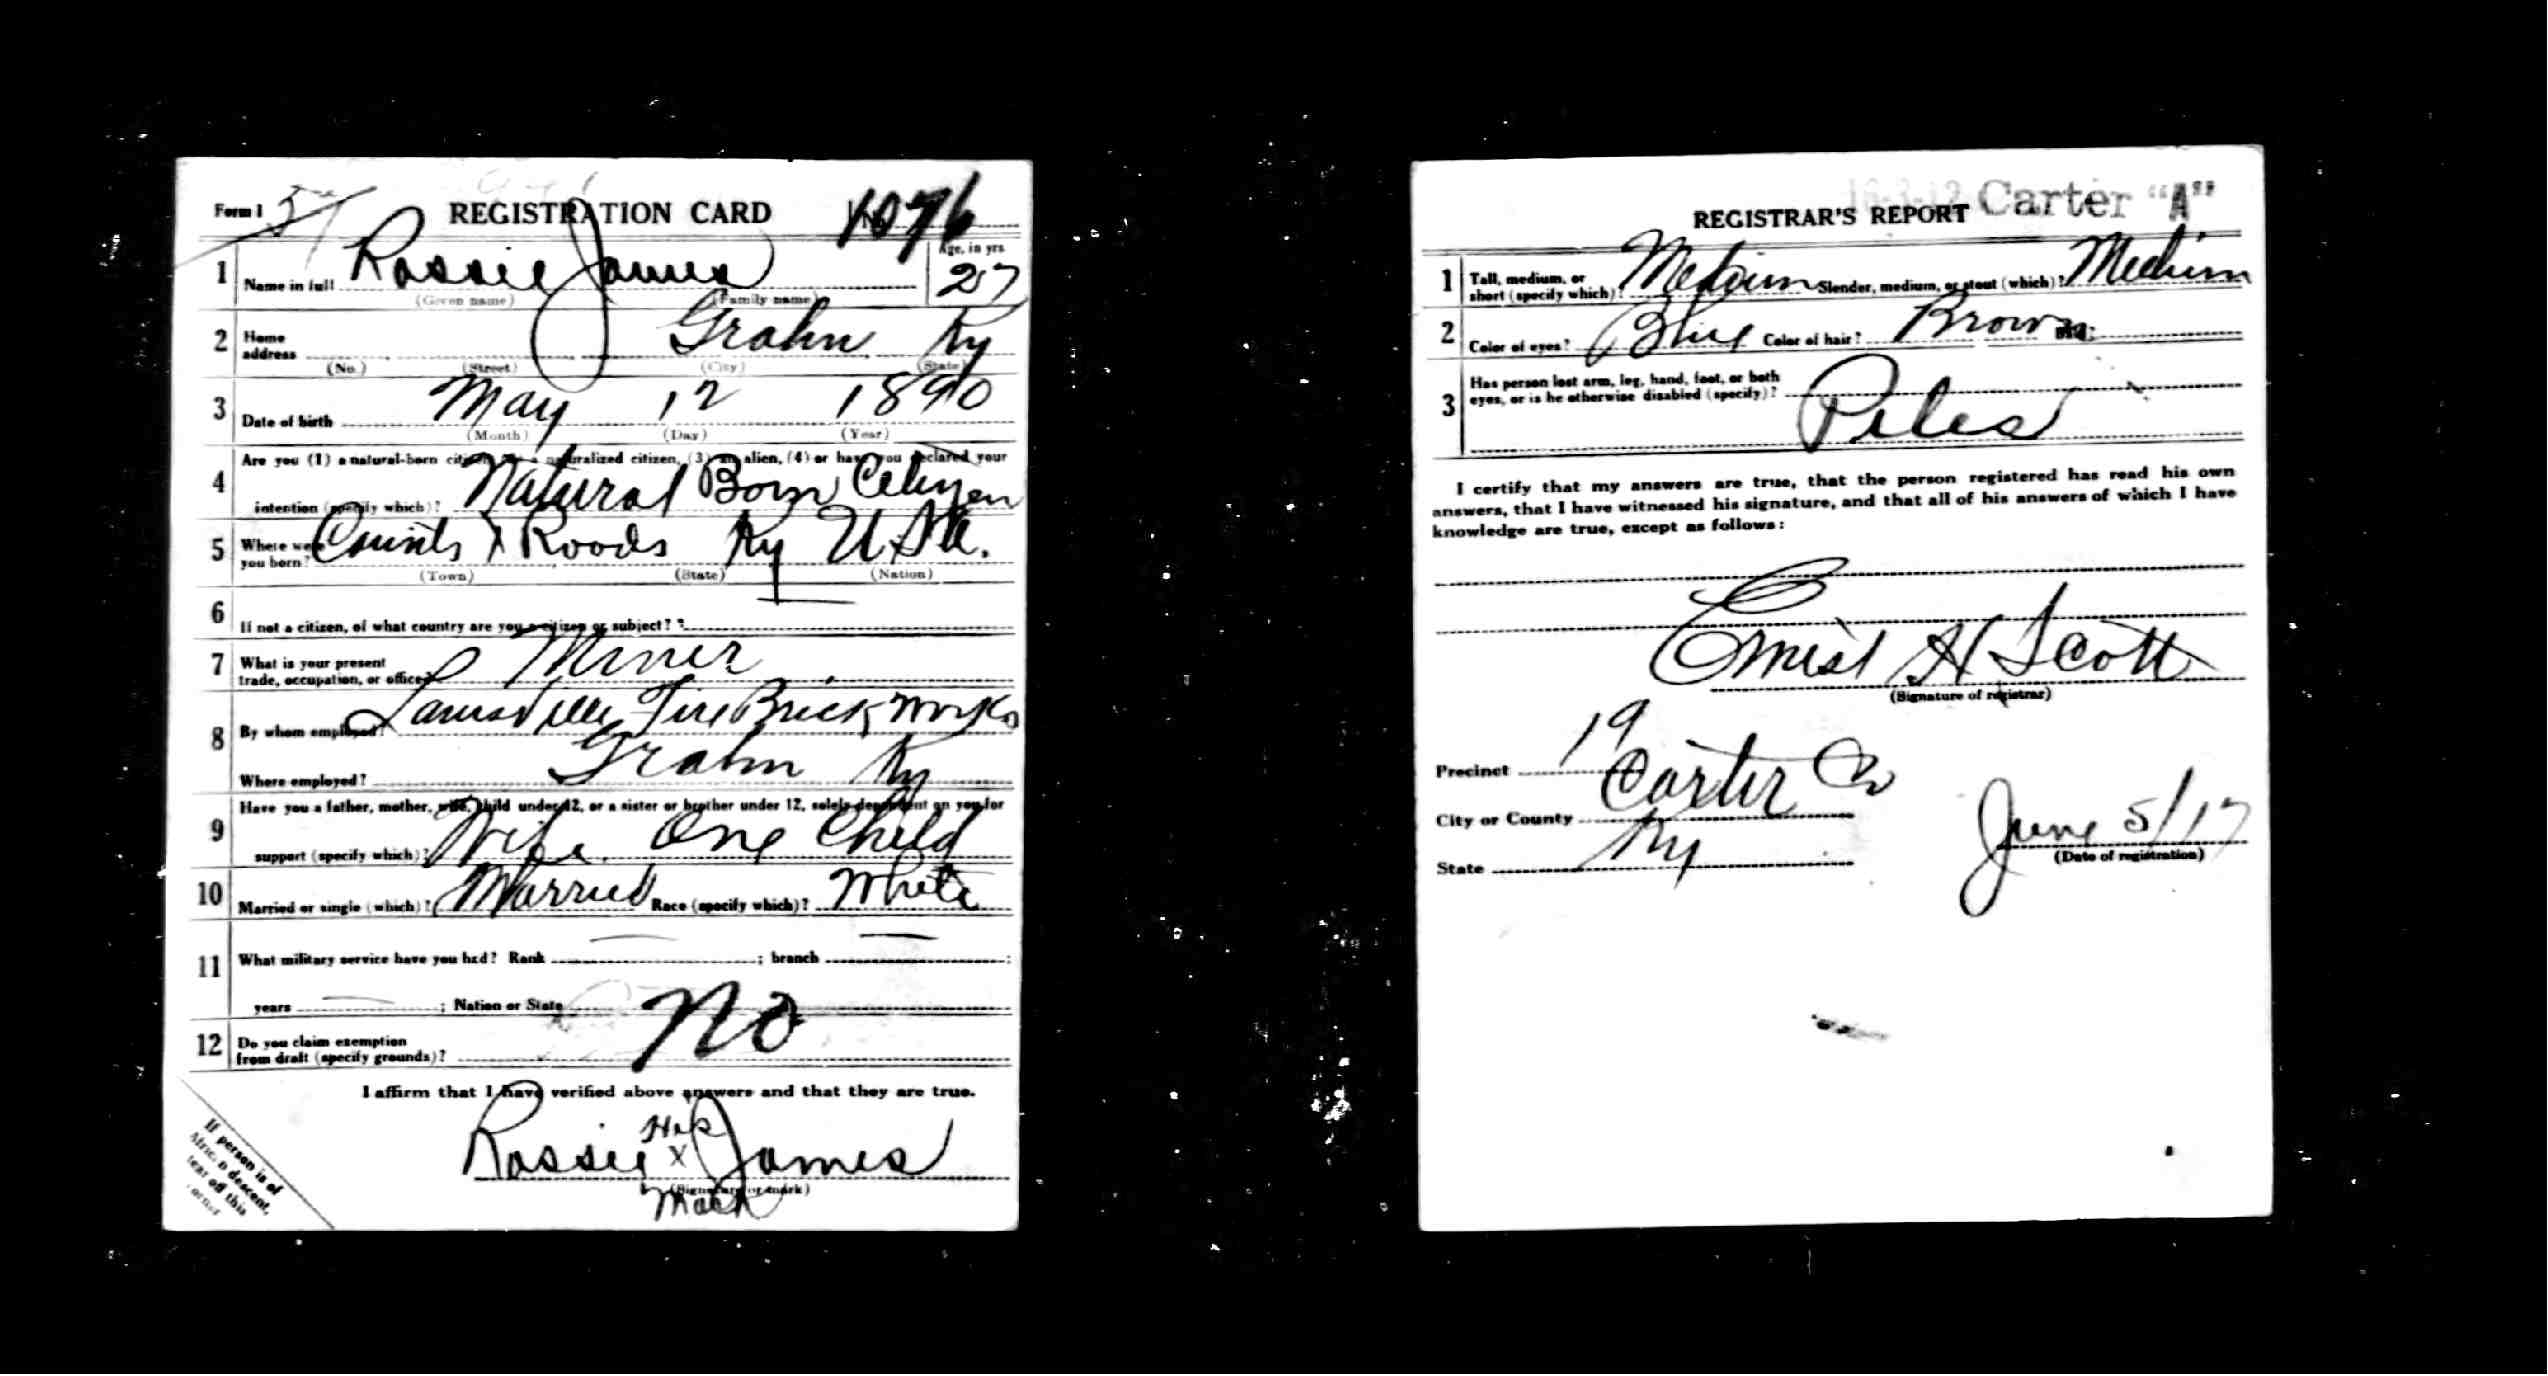 Form 1 REGISTRATION CARD No. 1076
1 Name in full Rossie James Age, in yrs 27
(Given name) (Family name)
2 Home address Grahn Ky
(No.) (Street) (City) (State)
3 Date of birth May 12 1890
(Month) (Day) (Year)
4 Are you (1) a natural-born citizen, (2) a naturalized citizen, (3) an alien, (4) or have you declared your
intention (specify which)? Natural Born Citizen
5 Where were you born? Counts X Roads Ky U.S.A.
(Town) (State) (Nation)
6 If not a citizen, of what country are you a citizen or subject?
7 What is your present
trade, occupation, or office? Miner
8 By whom employed? Louisville Fire Brick Works
Where employed? Grahn Ky
9 Have you a father, mother, wife, child under 12, or a sister or brother under 12, solely dependent on you for
support (specify which)? Wife. One Child
10 Married or single (which)? Married Race (specify which)? White
11 What military service have you had? Rank ; branch ;
years ; Nation or State
12 Do you claim exemption
from draft (specify grounds)? No
I affirm that I have verified above answers and that they are true.
His
Rossie X James
(Signature or mark)
Mark
If person is of
African descent,
tear off this
corner
16-3-12 Carter "A"
REGISTRAR'S REPORT
1 Tall, medium, or
short (specify which)? Medium Slender, medium, or stout (which)? Medium
2 Color of eyes? Blue Color of hair? Brown
3 Has person lost arm, leg, hand, foot, or both
eyes, or is he otherwise disabled (specify)?
Piles
I certify that my answers are true, that the person registered has read his own
answers, that I have witnessed his signature, and that all of his answers of which I have
knowledge are true, except as follows:
Ernest H Scott
(Signature of registrar)
Precinct 19
City or County Carter Co
State Ky
June 5/17
(Date of registration)